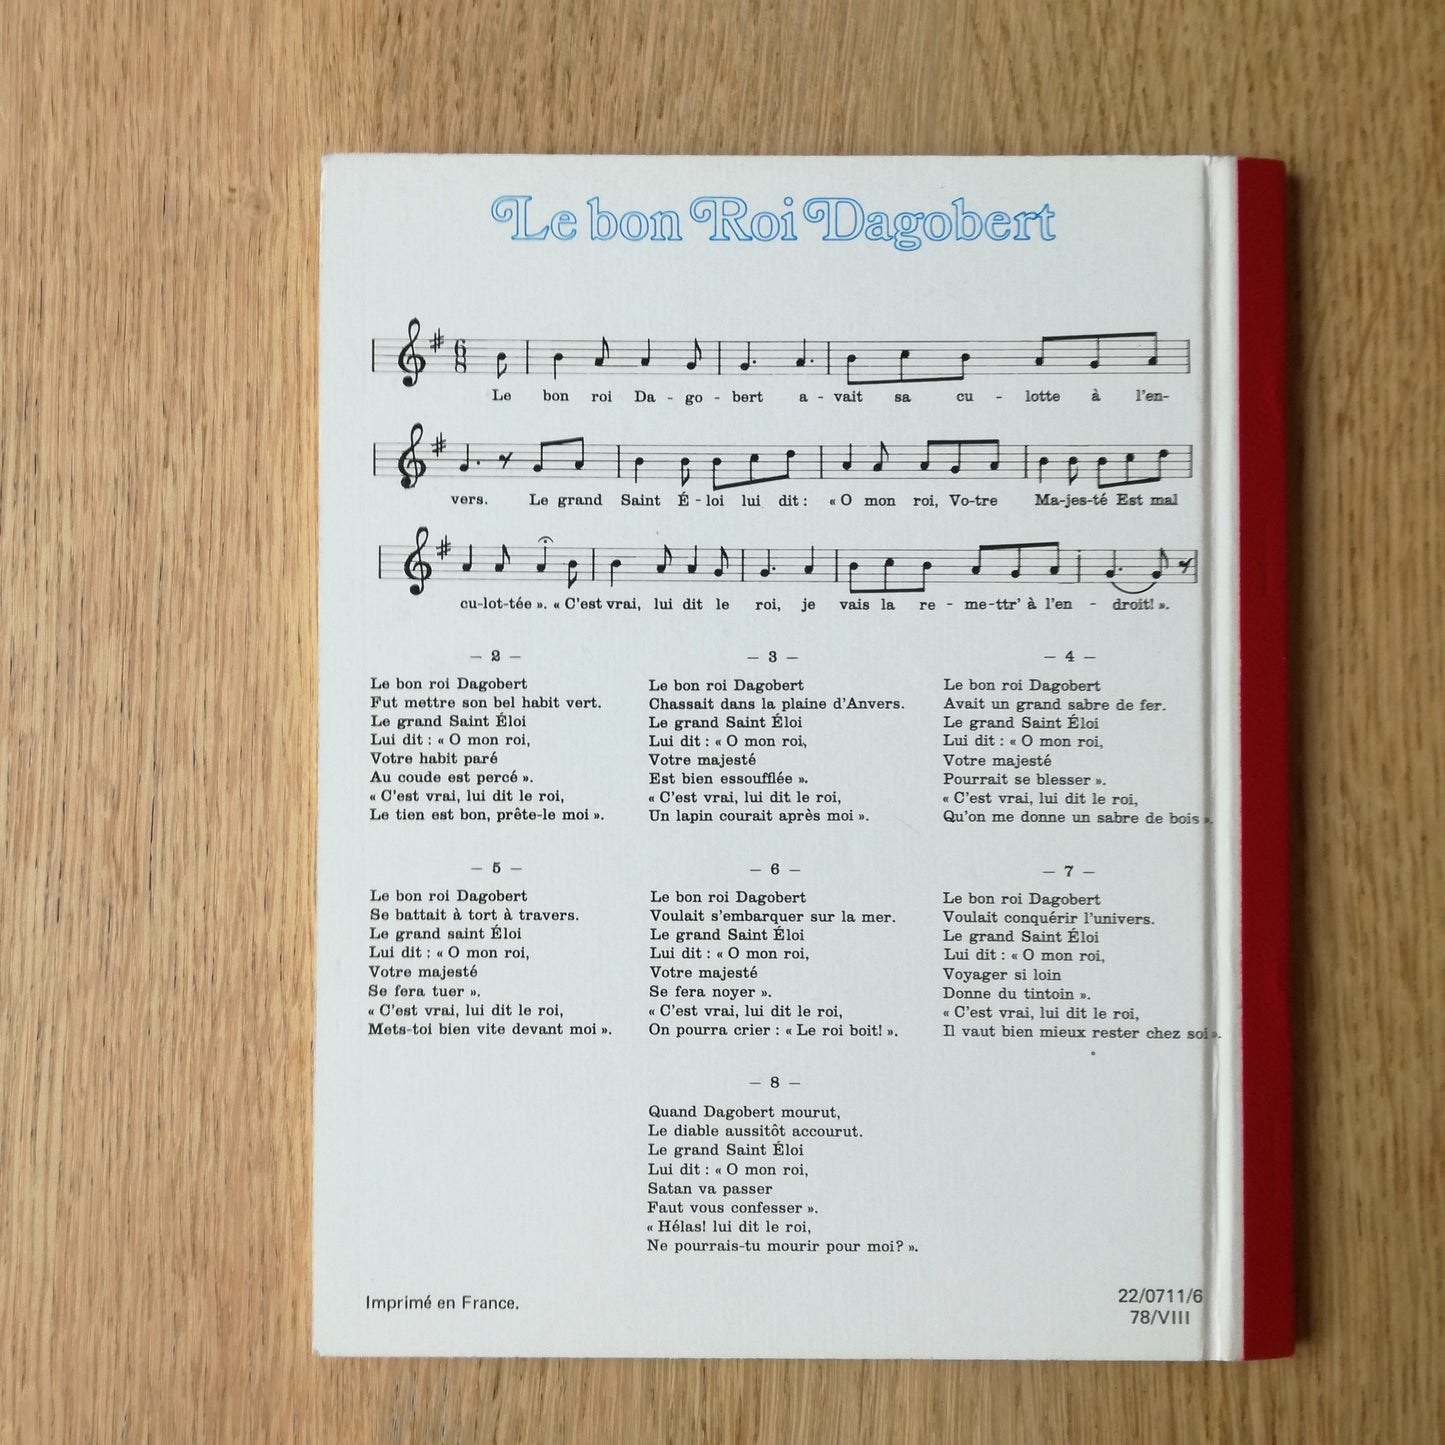 Le bon Roi Dagobert
Le bon roi Da - go - bert a - vait sa cu - lotte à l'en-
vers. Le grand Saint É - loi lui dit : « O mon roi, Vo-tre Ma-jes-té Est mal
cu-lot-tée ». « C'est vrai, lui dit le roi, je vais la re - me-ttr' à l'en - droit! ».
— 2 —
Le bon roi Dagobert
Fut mettre son bel habit vert.
Le grand Saint Éloi
Lui dit : « O mon roi,
Votre habit paré
Au coude est percé ».
« C'est vrai, lui dit le roi,
Le tien est bon, prête-le moi ».
— 3 —
Le bon roi Dagobert
Chassait dans la plaine d'Anvers.
Le grand Saint Éloi
Lui dit : « O mon roi,
Votre majesté
Est bien essoufflée ».
« C'est vrai, lui dit le roi,
Un lapin courait après moi ».
— 4 —
Le bon roi Dagobert
Avait un grand sabre de fer.
Le grand Saint Éloi
Lui dit : « O mon roi,
Votre majesté
Pourrait se blesser ».
« C'est vrai, lui dit le roi,
Qu'on me donne un sabre de bois ».
— 5 —
Le bon roi Dagobert
Se battait à tort à travers.
Le grand saint Éloi
Lui dit : « O mon roi,
Votre majesté
Se fera tuer ».
« C'est vrai, lui dit le roi,
Mets-toi bien vite devant moi ».
— 6 —
Le bon roi Dagobert
Voulait s'embarquer sur la mer.
Le grand Saint Éloi
Lui dit : « O mon roi,
Votre majesté
Se fera noyer ».
« C'est vrai, lui dit le roi,
On pourra crier : « Le roi boit! ».
— 7 —
Le bon roi Dagobert
Voulait conquérir l'univers.
Le grand Saint Éloi
Lui dit : « O mon roi,
Voyager si loin
Donne du tintoin ».
« C'est vrai, lui dit le roi,
Il vaut bien mieux rester chez soi ».
— 8 —
Quand Dagobert mourut,
Le diable aussitôt accourut.
Le grand Saint Éloi
Lui dit : « O mon roi,
Satan va passer
Faut vous confesser ».
« Hélas! lui dit le roi,
Ne pourrais-tu mourir pour moi? ».
Imprimé en France.
22/0711/6
78/VIII